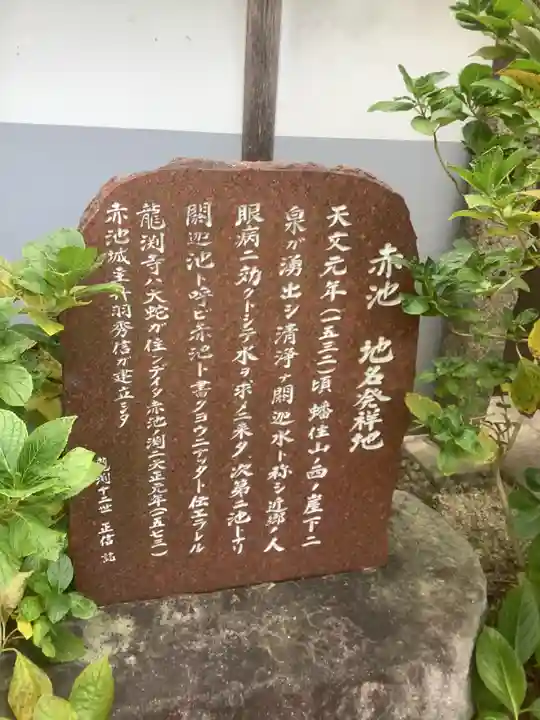 赤池 地名発祥地
天文元年(一五三二)頃 蟠住山ノ西ノ崖下ニ
泉ガ湧出シ清浄ナ閼迦水ト称シ近郷ノ人
眼病ニ効クトシテ水ヲ求メニ来タ次第ニ池トナリ
閼迦池ト呼ビ赤池ト書クヨウニナッタト伝エラレル
龍渕寺ハ大蛇ガ住ンデイタ赤池ノ渕ニ天正元年(一五七三)
赤池城主丹羽秀信ガ建立シタ
龍渕十二世 正信 誌